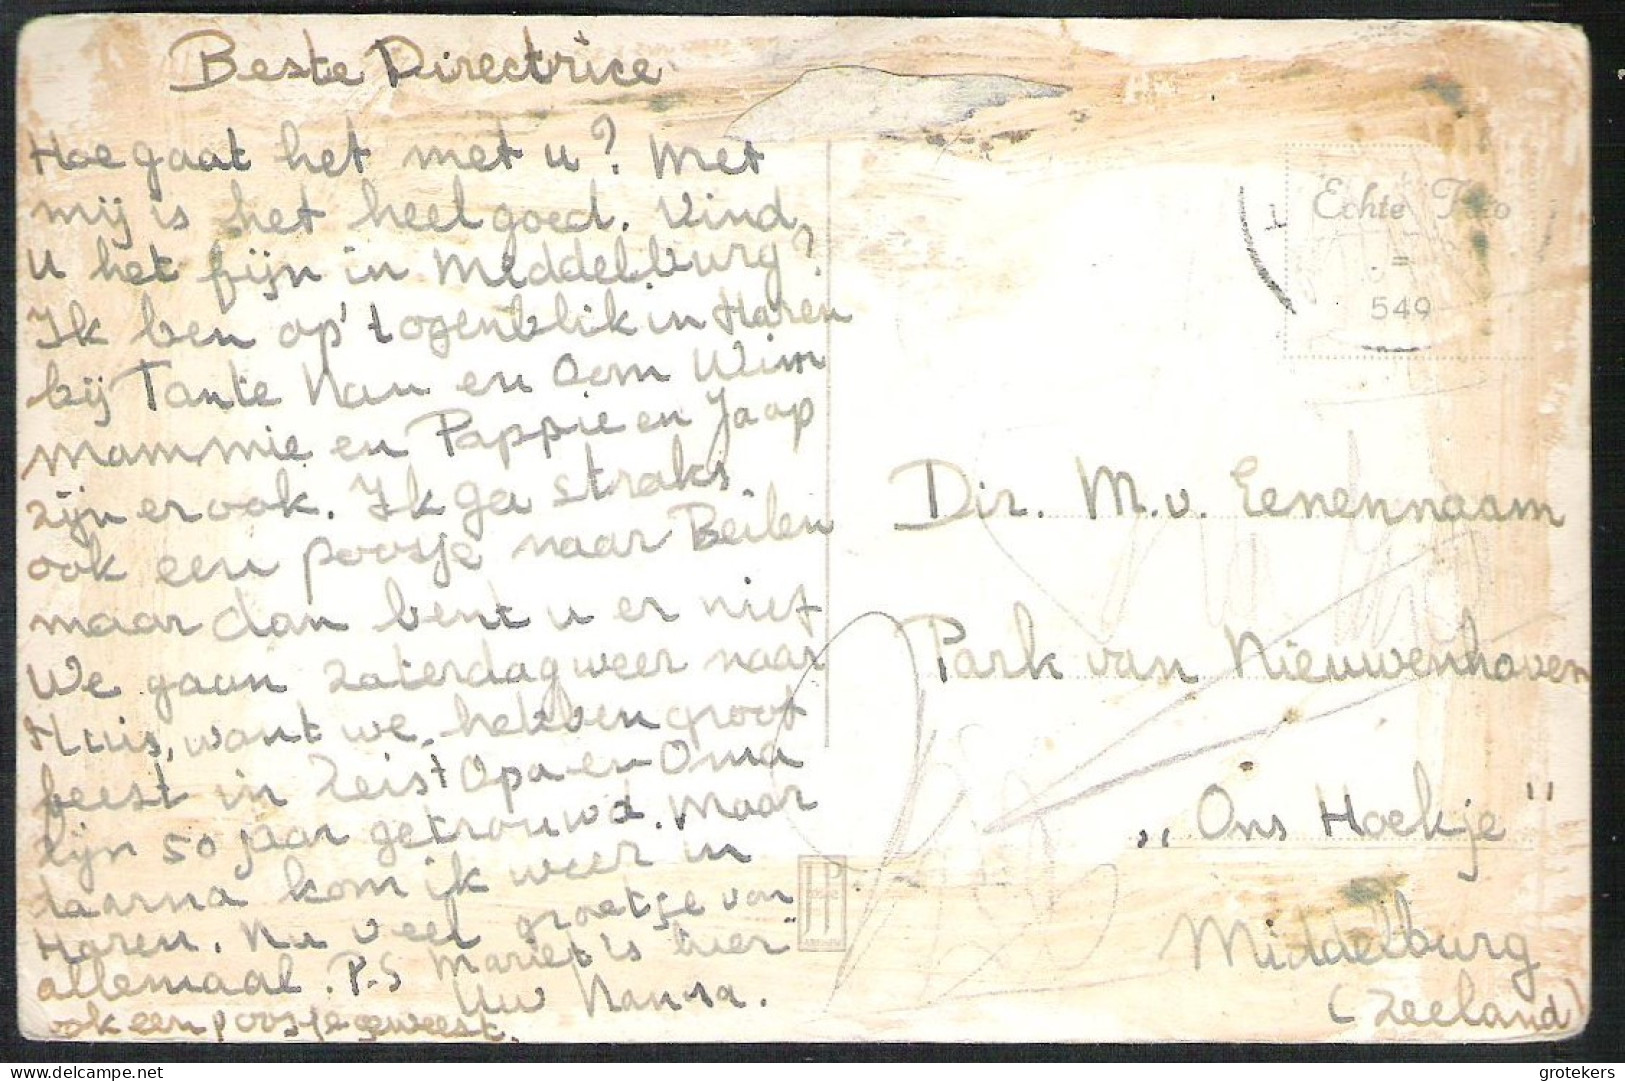 Beste Directrice
Hoe gaat het met u? Met
mij is het heel goed. Vind
u het fijn in Middelburg?
Ik ben op 't ogenblik in Haren
bij Tante Nan en Oom Wim
Mammie en Pappie en Jaap
zijn er ook. Ik ga straks
ook een poosje naar Beilen
maar dan bent u er niet
We gaan zaterdag weer naar
Huis, want we hebben groot
feest in Zeist Opa en Oma
zijn 50 jaar getrouwd. Maar
daarna kom ik weer in
Haren. Nu veel groetjes van
allemaal. P.S Mariet is hier
Uw Nanna.
ook een poosje geweest.
Echte Foto
549
Dir. M. v. Eenennaam
Park van Nieuwenhoven
„Ons Hoekje"
Middelburg
(Zeeland)
delcampe.net
grotekers